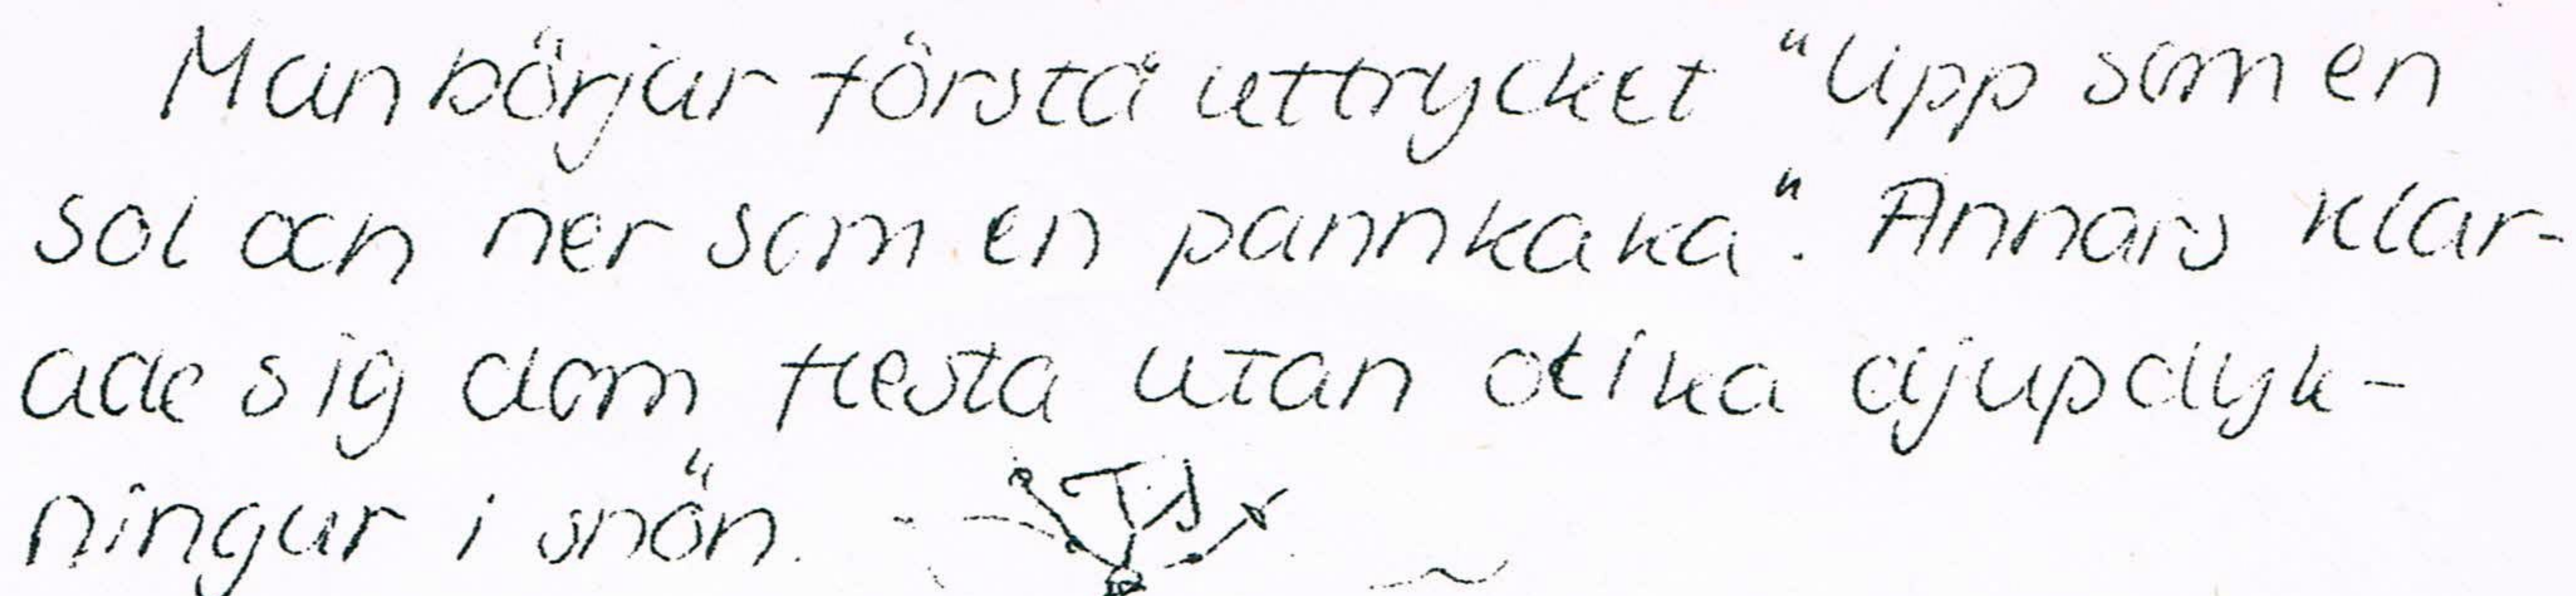 Man börjar förstå uttrycket "Upp som en
sol och ner som en pannkaka". Annars klar-
ade sig dom flesta utan olika djupdyk-
ningar i snön.